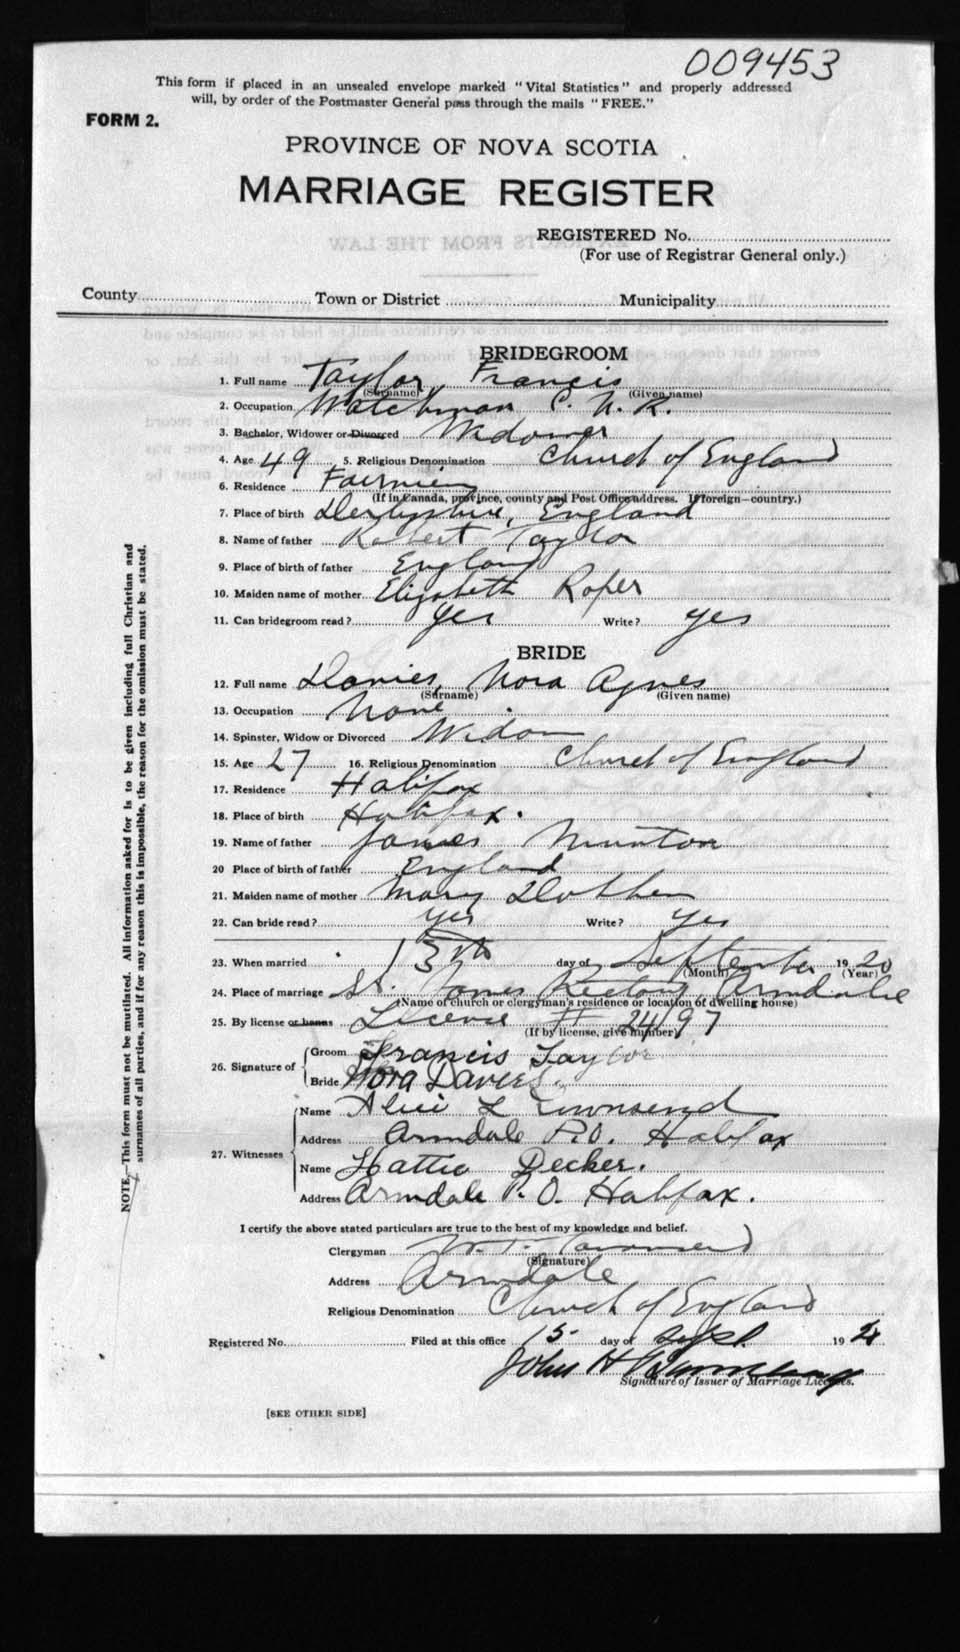 009453
This form if placed in an unsealed envelope marked "Vital Statistics" and properly addressed
will, by order of the Postmaster General pass through the mails "FREE."
FORM 2.
PROVINCE OF NOVA SCOTIA
MARRIAGE REGISTER
REGISTERED No.
(For use of Registrar General only.)
County Town or District Municipality
BRIDEGROOM
1. Full name Taylor, Francis
(Surname) (Given name)
2. Occupation Watchman C. N. R.
3. Bachelor, Widower or Divorced Widower
4. Age 49 5. Religious Denomination Church of England
6. Residence Fairview
(If in Canada, province, county and Post Office address. If foreign—country.)
7. Place of birth Derbyshire, England
8. Name of father Robert Taylor
9. Place of birth of father England
10. Maiden name of mother Elizabeth Roper
11. Can bridegroom read? Yes Write? yes
BRIDE
12. Full name Davies, Nora Agnes
(Surname) (Given name)
13. Occupation None
14. Spinster, Widow or Divorced Widow
15. Age 27 16. Religious Denomination Church of England
17. Residence Halifax
18. Place of birth Halifax.
19. Name of father James Munton
20 Place of birth of father England
21. Maiden name of mother Mary
22. Can bride read? yes Write? yes
23. When married 13th day of September 1920
(Month) (Year)
24. Place of marriage St. James Rectory Armdale
(Name of church or clergyman's residence or location of dwelling house)
25. By license or banns License # 24197
(If by license, give number)
26. Signature of Groom Francis Taylor
Bride Nora Davies.
27. Witnesses
Name Alice L Townsend
Address Armdale P.O. Halifax
Name Hattie Decker.
Address Armdale P. O. Halifax.
I certify the above stated particulars are true to the best of my knowledge and belief.
Clergyman Townsend
(Signature)
Address Armdale
Religious Denomination Church of England
Registered No. Filed at this office 15 day of Sept. 192
John H
Signature of Issuer of Marriage Licenses.
[SEE OTHER SIDE]
NOTE.—This form must not be mutilated. All information asked for is to be given including full Christian and
surnames of all parties, and if for any reason this is impossible, the reason for the omission must be stated.